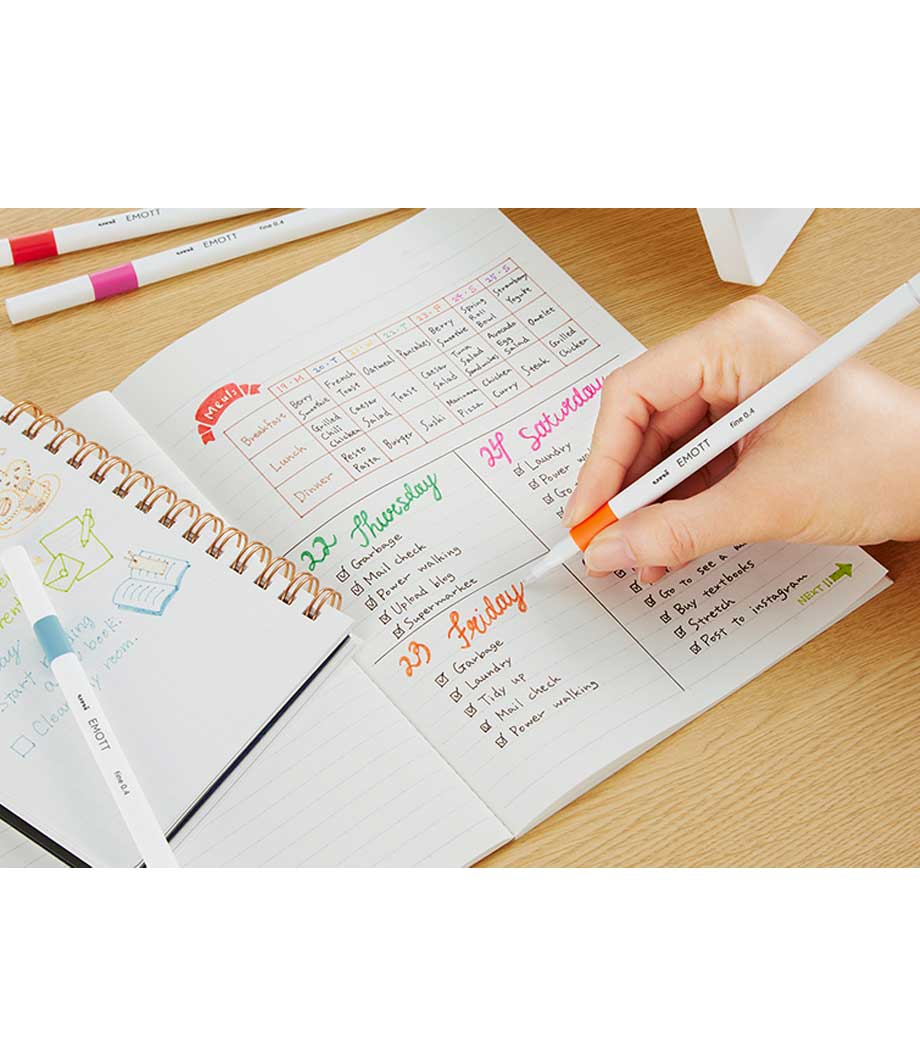 uni EMOTT
uni EMOTT fine 0.4
Meals
19・M 20・T 21・W 22・T 23・F 24・S 25・S
Breakfast Berry Smoothie French Toast Oatmeal Pancakes Berry Smoothie Spring Roll Bowl Strawberry Yogurt
Lunch Grilled Chili Chicken Caesar Salad Toast Caesar Salad Tuna Salad Sandwiches Avocado Egg Salad Omelet
Dinner Pesto Pasta Burger Sushi Marinara Pizza Chicken Curry Steak Grilled Chicken
22 Thursday
Garbage
Mail check
Power walking
Upload blog
Supermarket
23 Friday
Garbage
Laundry
Tidy up
Mail check
Power walking
24 Saturday
Laundry
Power
Go
Go to see a
Buy textbooks
Stretch
Post to instagram
NEXT!!
uni EMOTT fine 0.4
Start
book.
Clean my room.
uni EMOTT fine 0.4